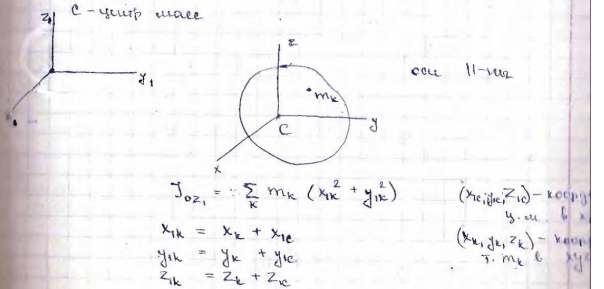 C - центр масс
z₁
y₁
z
y
x
C
mₖ
оси ||-ны
J_{OZ₁} = Σ_k mₖ (x₁ₖ² + y₁ₖ²)
x₁ₖ = xₖ + x₁c
y₁ₖ = yₖ + y₁c
z₁ₖ = zₖ + z₁c
(x₁c, y₁c, z₁c) - коорд
ц.м в x
(xₖ, yₖ, zₖ) - коорд
т. mₖ в xy